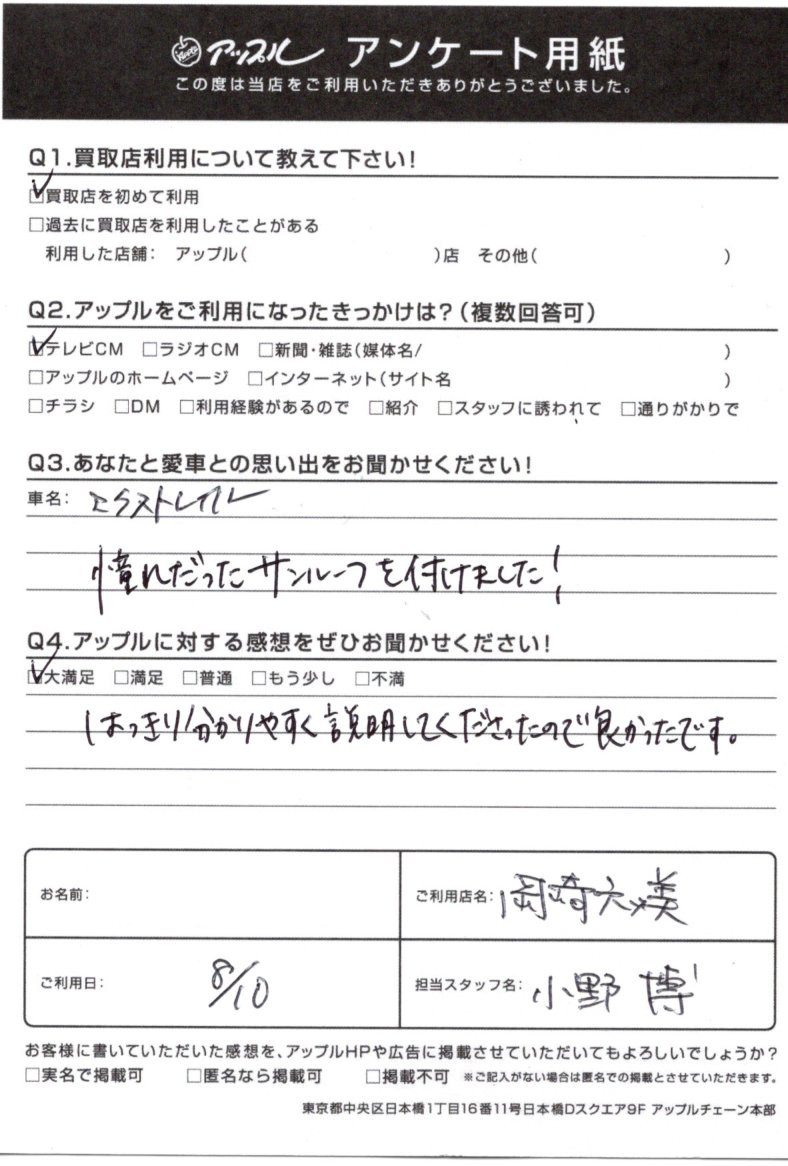 アップル アンケート用紙
この度は当店をご利用いただきありがとうございました。
Q1.買取店利用について教えて下さい!
☑買取店を初めて利用
□過去に買取店を利用したことがある
利用した店舗: アップル( )店 その他( )
Q2.アップルをご利用になったきっかけは?(複数回答可)
☑テレビCM □ラジオCM □新聞・雑誌(媒体名/ )
□アップルのホームページ □インターネット(サイト名 )
□チラシ □DM □利用経験があるので □紹介 □スタッフに誘われて □通りがかりで
Q3.あなたと愛車との思い出をお聞かせください!
車名: エクストレイル
憧れだったサンルーフを付けました!
Q4.アップルに対する感想をぜひお聞かせください!
☑大満足 □満足 □普通 □もう少し □不満
はっきり分かりやすく説明してくださったので良かったです。
お名前:
ご利用店名: 岡崎六ツ美
ご利用日: 8/10
担当スタッフ名: 小野 博
お客様に書いていただいた感想を、アップルHPや広告に掲載させていただいてもよろしいでしょうか?
□実名で掲載可 □匿名なら掲載可 □掲載不可 ※ご記入がない場合は匿名での掲載とさせていただきます。
東京都中央区日本橋1丁目16番11号日本橋Dスクエア9F アップルチェーン本部